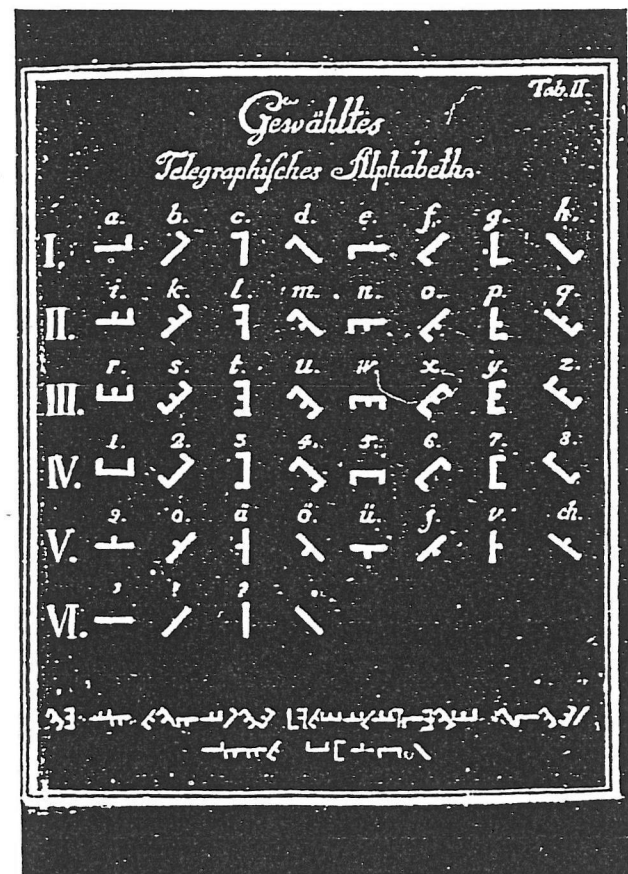 Tab. II.
Gewähltes
Telegraphisches Alphabeth.
a. b. c. d. e. f. g. h.
I.
i. k. l. m. n. o. p. q.
II.
r. s. t. u. w. x. y. z.
III.
1. 2. 3. 4. 5. 6. 7. 8.
IV.
9. 0. ä. ö. ü. j. v. ch.
V.
, ! ? .
VI.